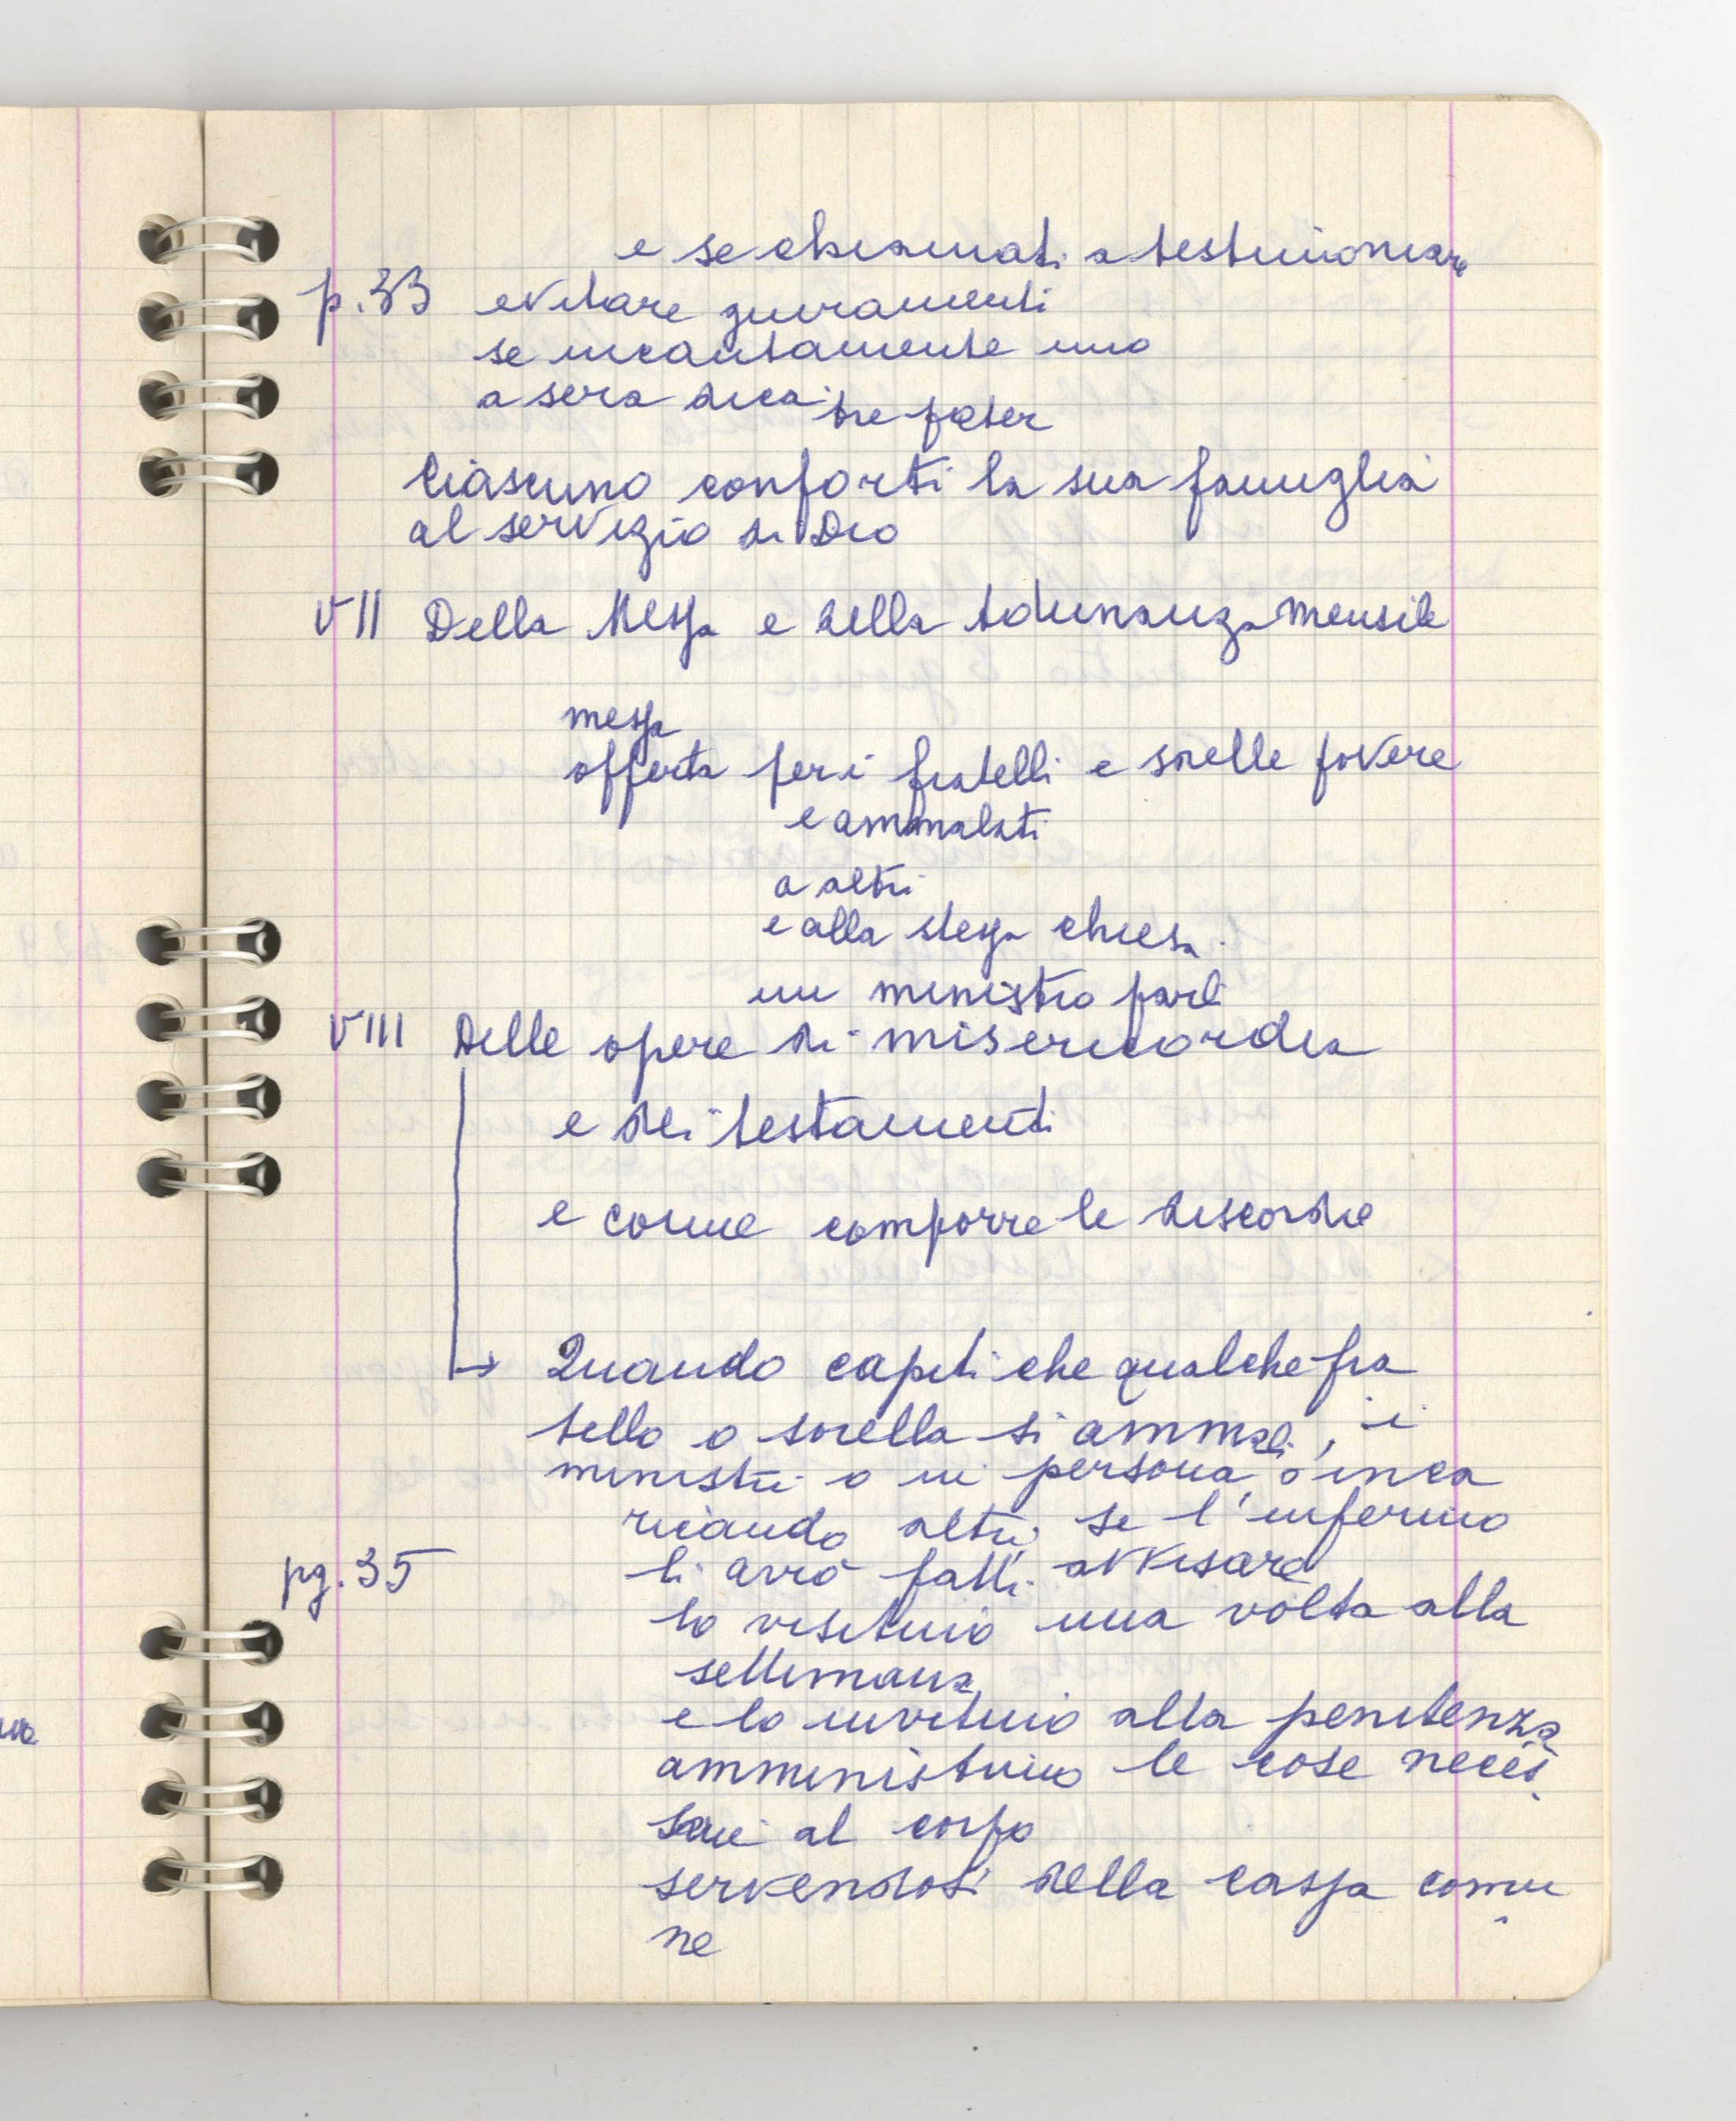 e se chiamati a testimoniare
p. 33 evitare giuramenti
se incautamente uno
a sera dica tre pater
Ciascuno conforti la sua famiglia
al servizio di Dio
VII Della Messa e della Adunanza mensile
messa
offerta per i fratelli e sorelle povere
e ammalati
a altri
e alla stessa chiesa.
un ministro parli
VIII Delle opere di misericordia
e dei testamenti
e come comporre le discordie
→ Quando capiti che qualche fra
tello o sorella si ammali, i
ministri o in persona, o inca
ricando altri, se l'infermo
li avrà fatti avvisare
pg. 35
lo visitino una volta alla
settimana
e lo invitino alla penitenza
amministrino le cose neces
sarie al corpo
servendosi della cassa comu
ne